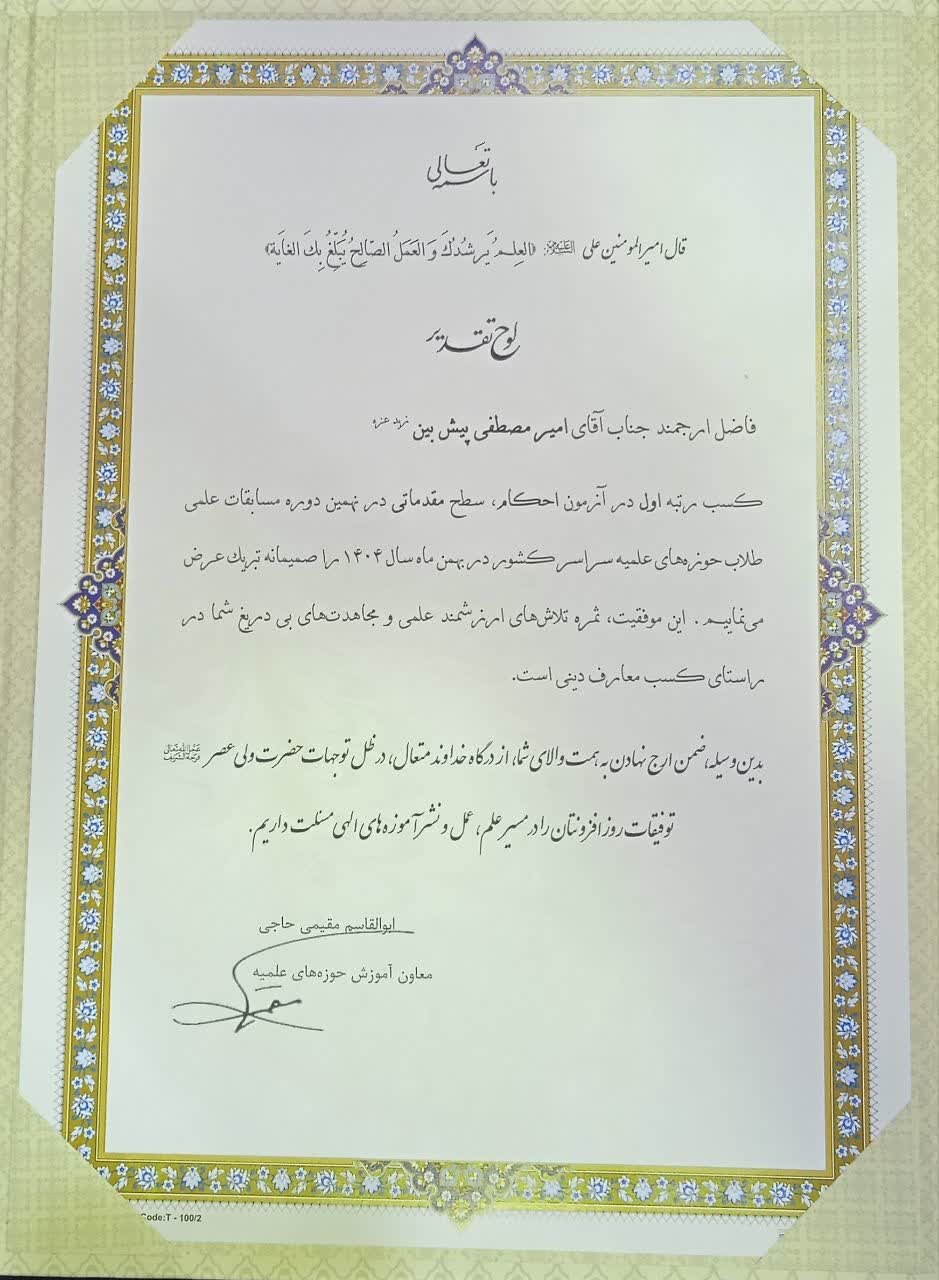 باسمه تعالی
قال امیرالمومنین علی علیه‌السلام «العِلمُ یَرشُدُكَ وَ العَمَلُ الصّالِحُ یُبَلِّغُ بِكَ الغایَة»
لوح تقدیر
فاضل ارجمند جناب آقای امیر مصطفی پیش بین زید عزه
کسب رتبه اول در آزمون احکام، سطح مقدماتی در نهمین دوره مسابقات علمی
طلاب حوزه‌های علمیه سراسر کشور در بهمن ماه سال ۱۴۰۴ را صمیمانه تبریك عرض
می‌نماییم. این موفقیت، ثمره تلاش‌های ارزشمند علمی و مجاهدت‌های بی دریغ شما در
راستای کسب معارف دینی است.
بدین وسیله، ضمن ارج نهادن به همت والای شما، از درگاه خداوند متعال، در ظل توجهات حضرت ولی عصر عجل‌الله‌تعالی فرجه‌الشریف
توفیقات روز افزونتان را در مسیر علم، عمل و نشر آموزه های الهی مسئلت داریم.
ابوالقاسم مقیمی حاجی
معاون آموزش حوزه‌های علمیه
Code:T - 100/2